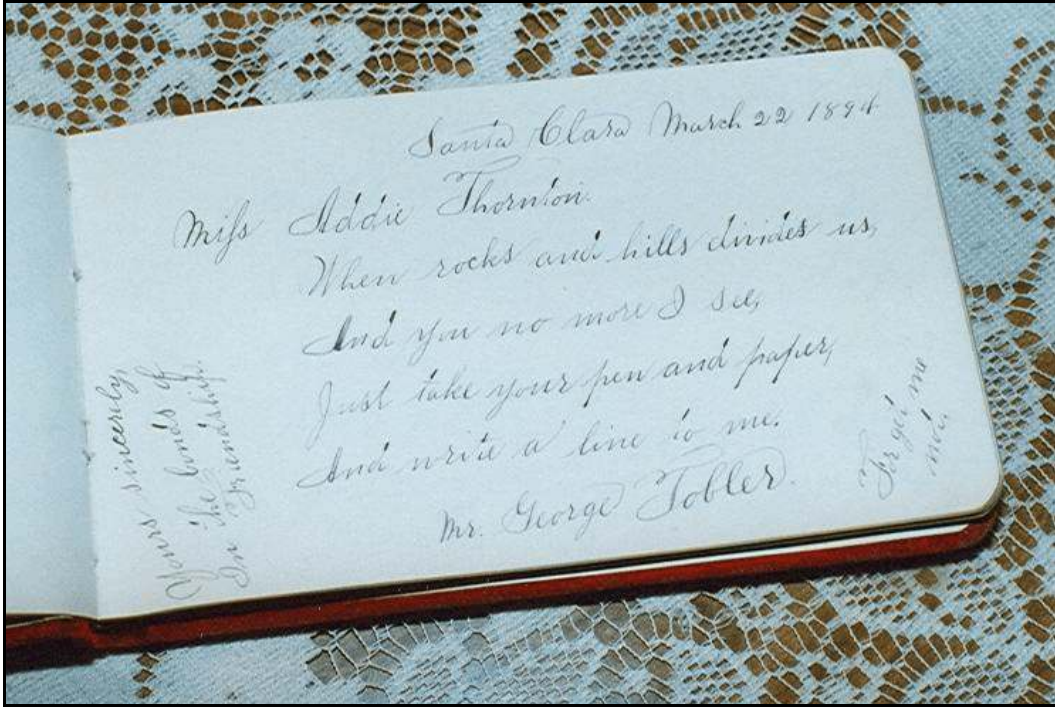 Santa Clara March 22 1894
Miss Addie Thornton.
When rocks and hills divides us,
And you no more I see,
Just take your pen and paper,
And write a line to me.
Mr. George Tobler.
Forget me
not.
Yours sincerely,
In the bonds of
Friendship.